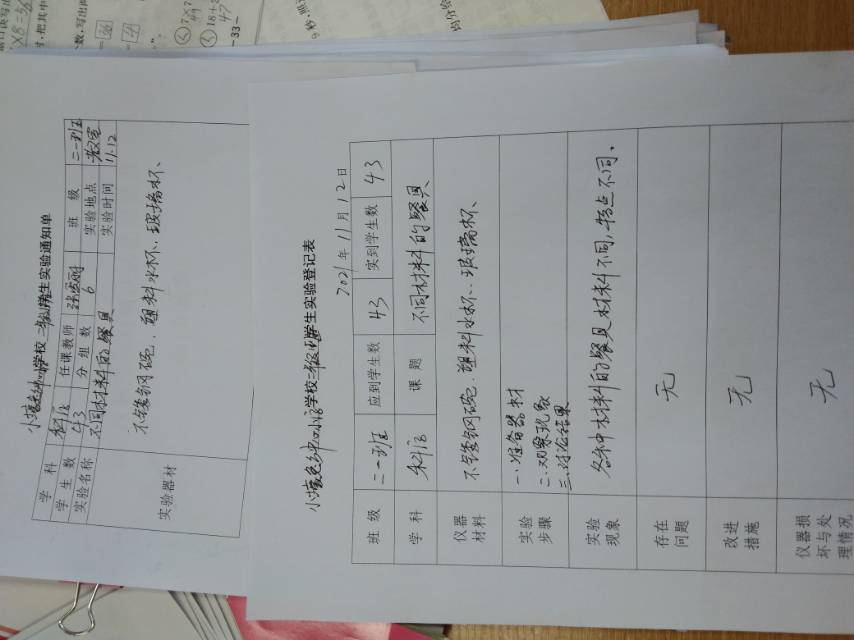 学生实验通知单
学 科 科学 任课教师 班 级 二一班
学 生 数 43 分 组 数 6 实验地点 教室
实验名称 不同材料的餐具 实验时间 11.12
实验器材 不锈钢碗、塑料水杯、玻璃杯、
学生实验登记表
2021年11月12日
班 级 二一班 应到学生数 43 实到学生数 43
学 科 科学 课 题 不同材料的餐具
仪器材料 不锈钢碗、塑料水杯、玻璃杯、
实验步骤 一、准备器材
二、观察现象
三、讨论结果
实验现象 各种材料的餐具材料不同,特点不同。
存在问题 无
改进措施 无
仪器损坏与处理情况 无
-33-